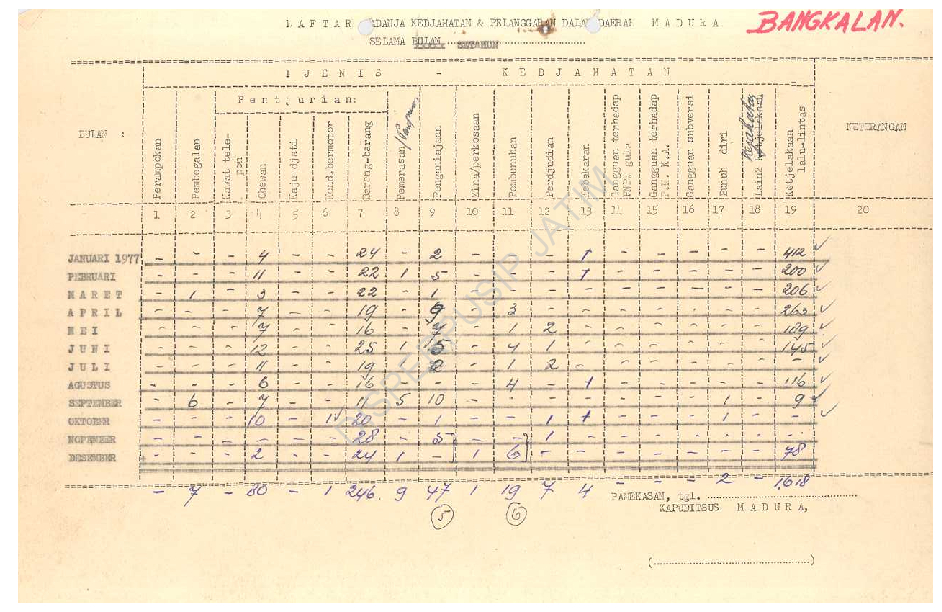 DAFTAR ADANJA KEDJAHATAN & PELANGGARAN DALAM DAERAH MADURA
BANGKALAN.
SELAMA BULAN SETAHUN
DJENIS - KEDJAHATAN
Pentjurian:
BULAN :
KETERANGAN
Perampokan
Pembegalan
Kawat tele-pon
Chewan
Kaju djati
Kend.bermotor
Barang-barang
Pemerasan
Penganiajaan
Zina/perkosaan
Pembunuhan
Perdjudian
Gangguan terhadap
Gangguan terhadap
Gangguan subversi
Bunuh diri
Ketjelakaan lalu-lintas
1 2 3 4 5 6 7 8 9 10 11 12 13 14 15 16 17 18 19 20
JANUARI 1977 - - - 4 - - 24 - 2 - - - 1 - - - - - 412
PEBRUARI - - - 11 - - 22 1 5 - - - 1 - - - - - 200
MARET - 1 - 3 - - 22 - 1 - - - - - - - - - 206
APRIL - - - 7 - - 19 - 9 - 3 - - - - - - - 265
MEI - - - 7 - - 16 - 7 - 1 2 - - - - - - 189
JUNI - - - 12 - - 25 1 5 - 4 1 - - - - - - 145
JULI - - - 11 - - 19 - - 1 2 - - - - - - -
AGUSTUS - - - 6 - - 16 - - - 4 - 1 - - - - - 116
SEPTEMBER - 6 - 7 - - 11 5 10 - - - - - - - 1 - 9
OKTOBER - - - 10 - 1 20 - 1 - - 1 1 - - - 1 - -
NOPEMBER - - - - - - 28 - 5 - - 1 - - - - - - -
DESEMBER - - - 2 - - 24 1 - 1 6 - - - - - - - 78
- 7 - 80 - 1 246. 9 47 1 19 7 4 - - - 2 - 1.618
5 6
PAMEKASAN, tgl.
KAPUDITSUS MADURA,
(....................)
DISPERPUSIP JATIM